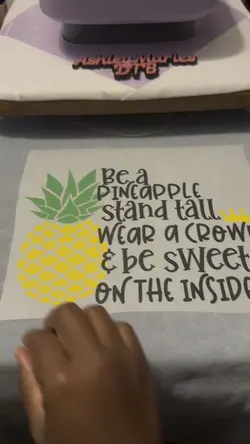 Ashley Marie's
DTB
Be a
PINEAPPLE
Stand tall
WEAR a CROWN
& be SWEET
ON THE INSIDE